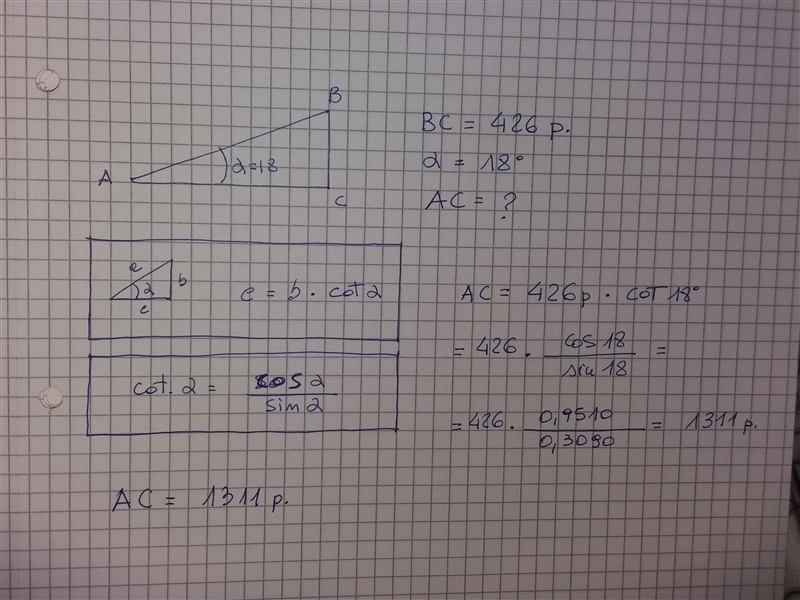 B
A
α=18
C
BC = 426 p.
α = 18°
AC = ?
a
b
α
c
c = b · cot α
cot. α = cos α / sin α
AC = 426p · cot 18°
= 426 · cos 18 / sin 18 =
= 426 · 0,9510 / 0,3090 = 1311 p.
AC = 1311 p.